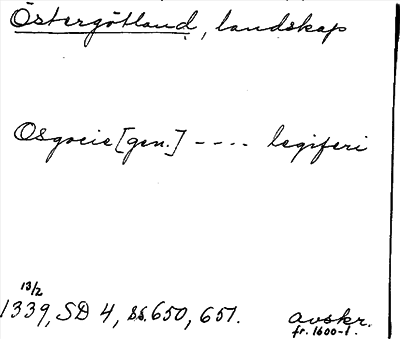 Östergötland, landskap
Osgocie [gen.] ---- legiferi
13/2
1339, SD 4, ss. 650, 651. avskr.
fr. 1600-t.